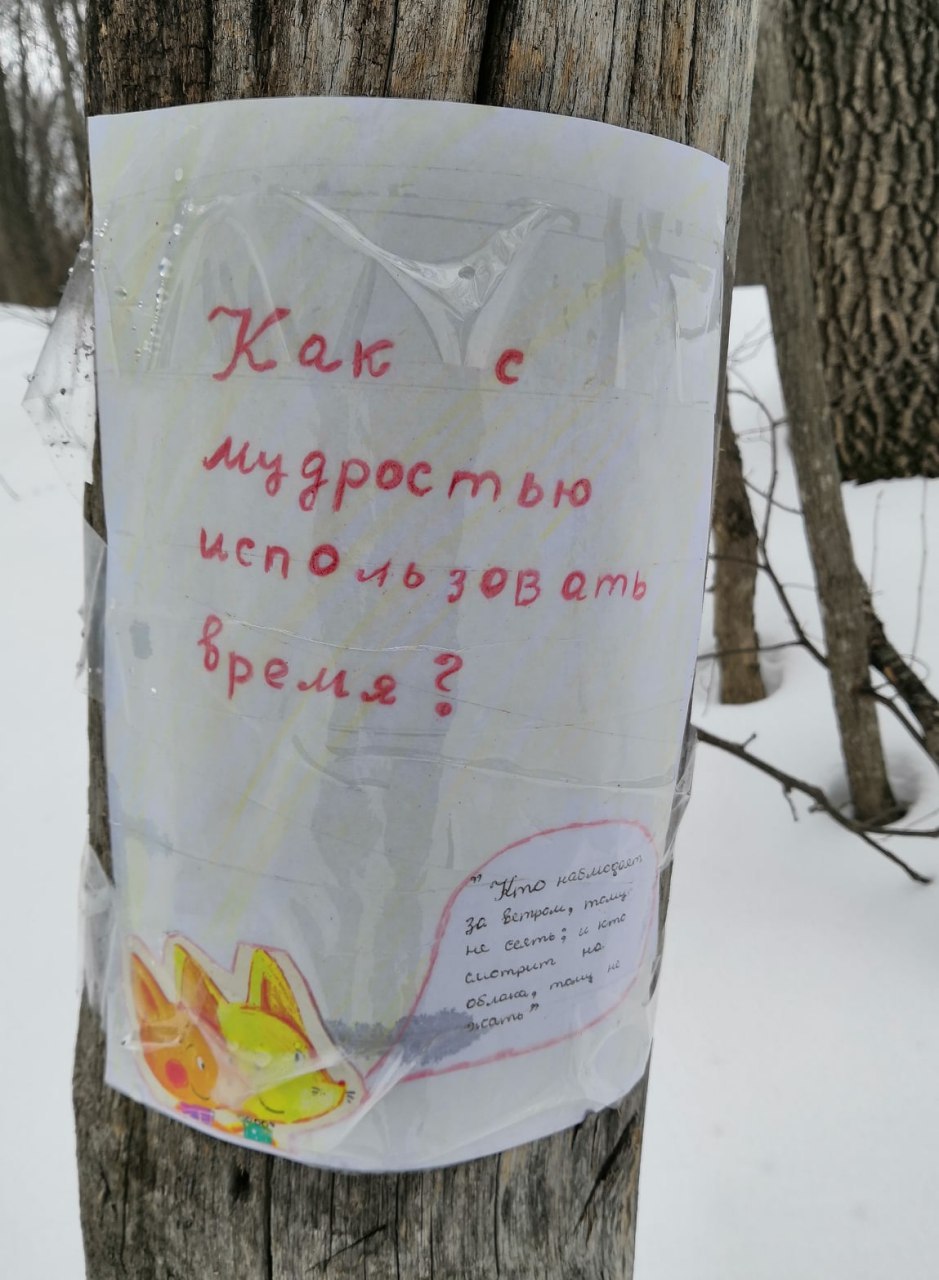 Как с
мудростью
использовать
время?
" Кто наблюдает
за ветром, тому
не сеять; и кто
смотрит на
облака, тому не
жать"